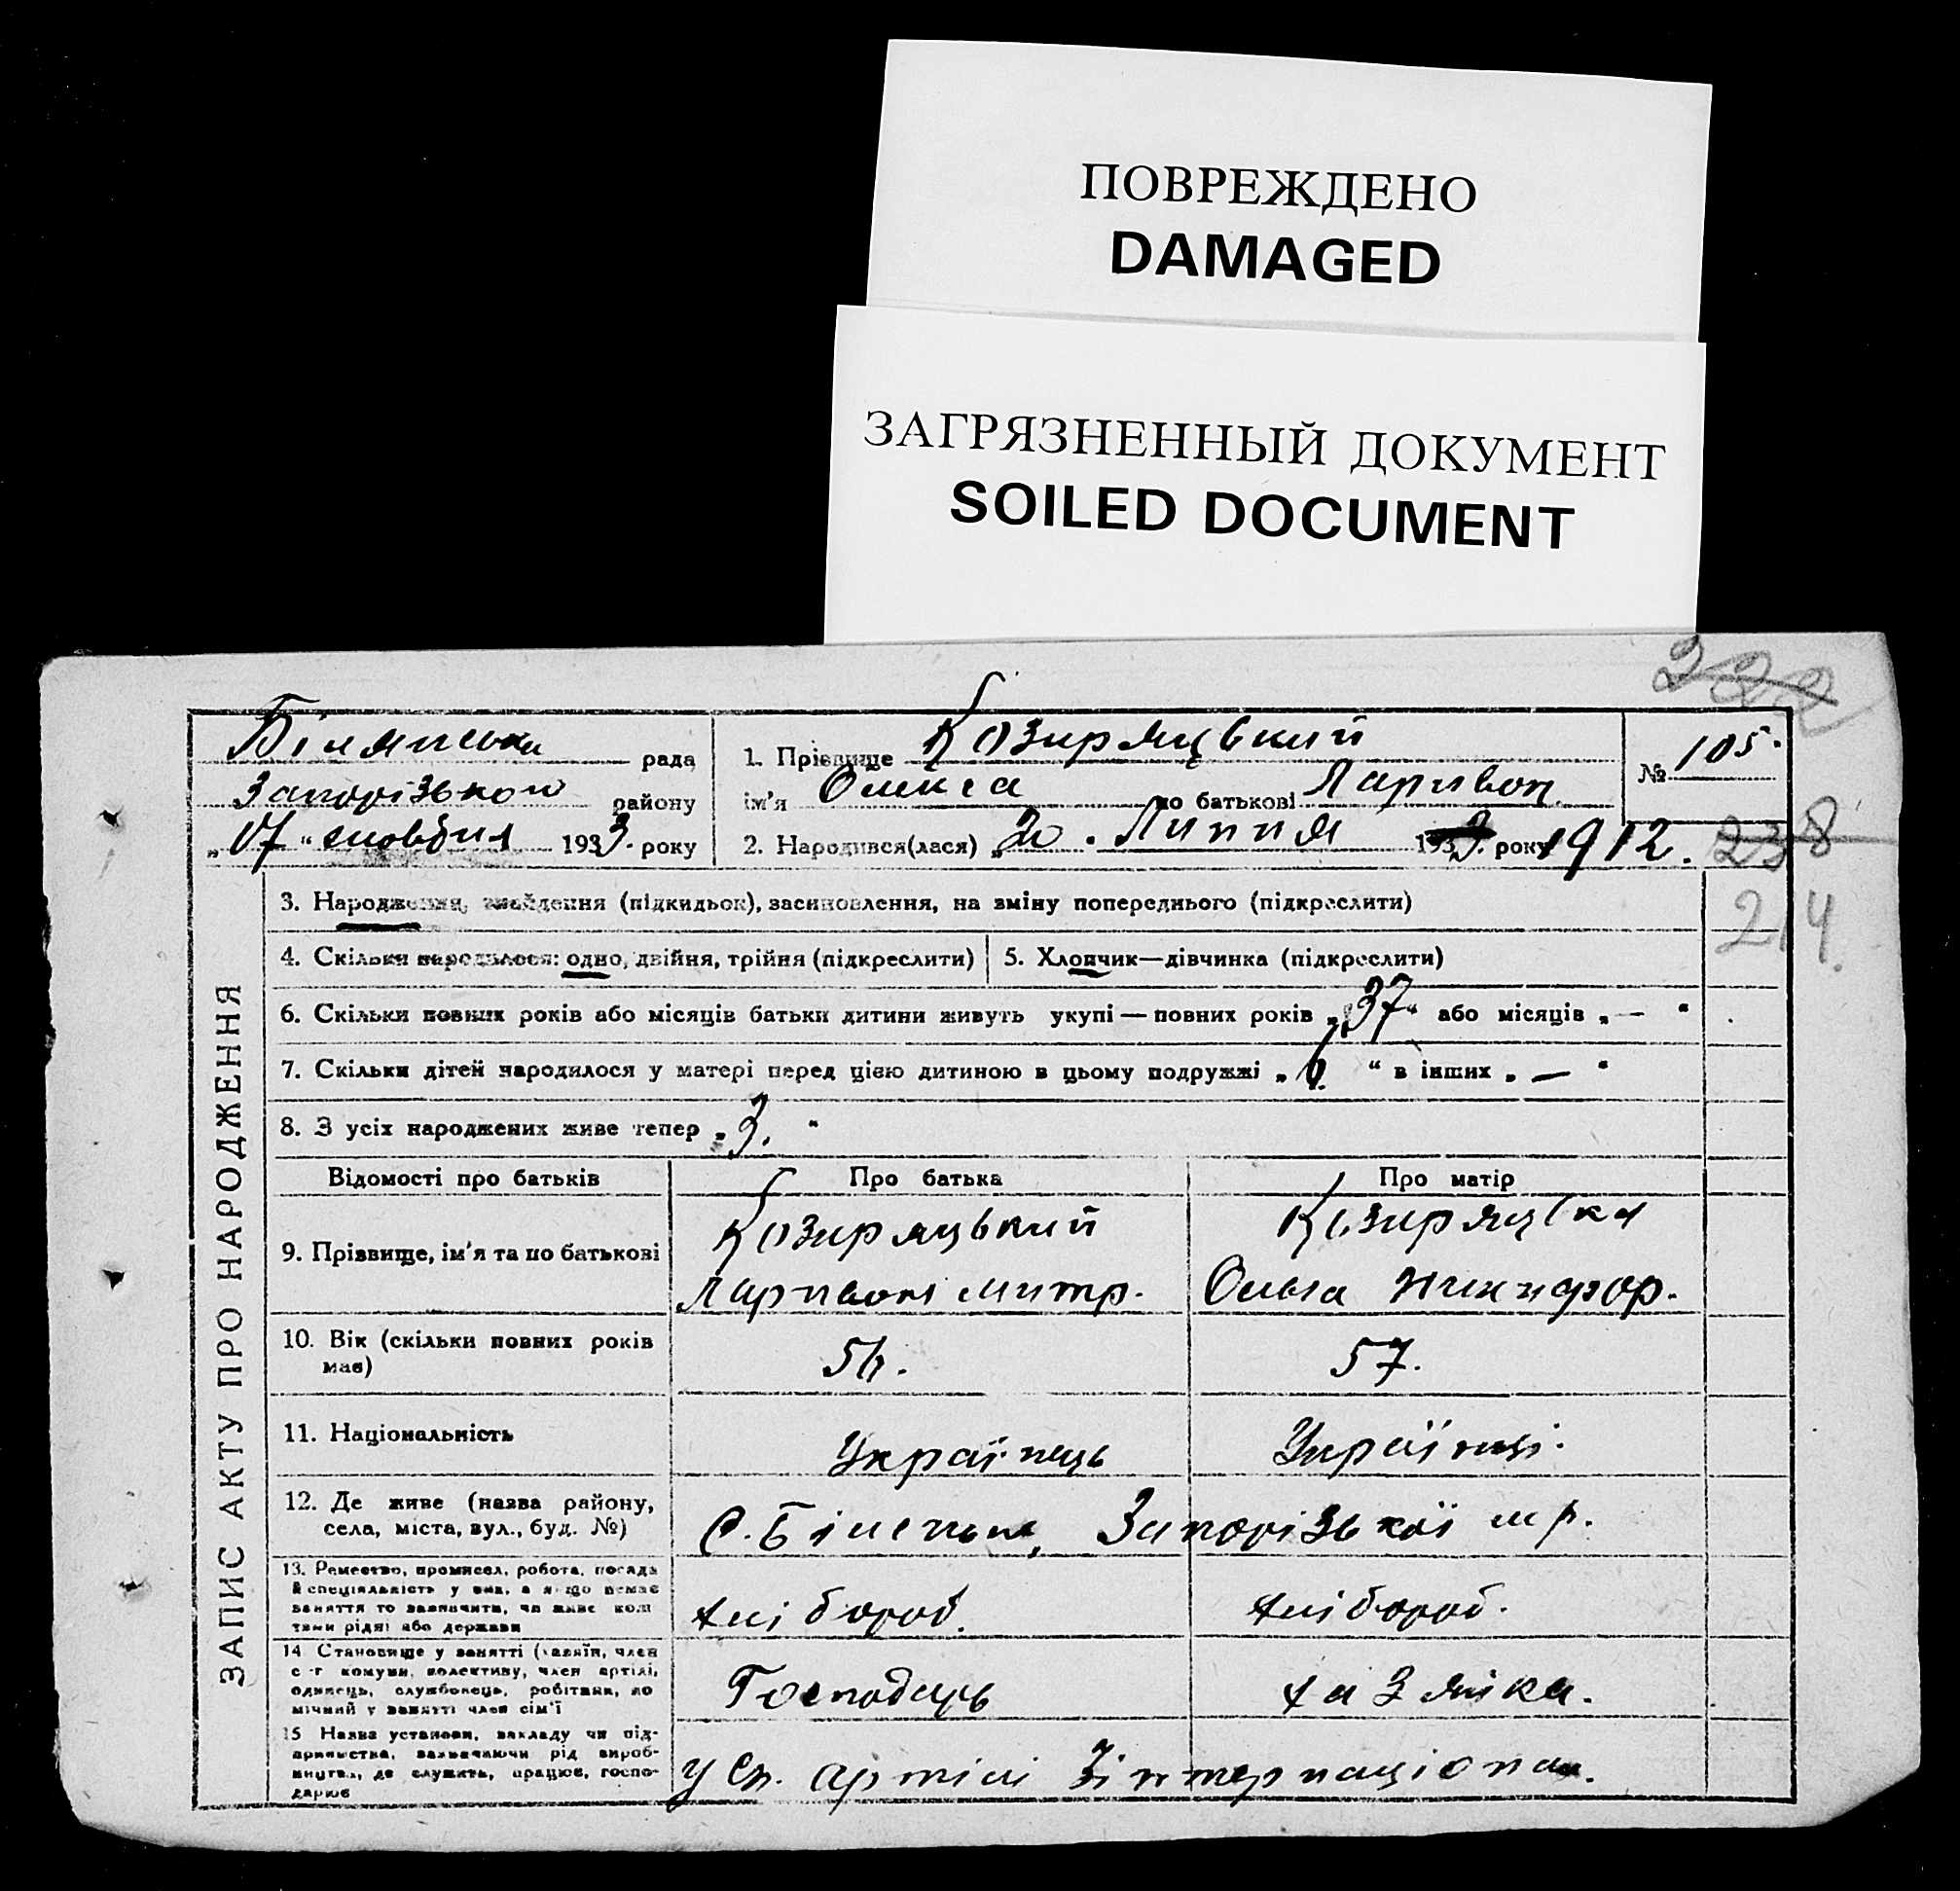 ПОВРЕЖДЕНО
DAMAGED
ЗАГРЯЗНЕННЫЙ ДОКУМЕНТ
SOILED DOCUMENT
222
рада
1. Прізвище Козиряцький
№ 105.
району
ім'я Олекса по батькові Ларивон.
„17“ жовтня 1933. року
2. Народився(лася) „20. Липня 193 року 1912.
238
214.
ЗАПИС АКТУ ПРО НАРОДЖЕННЯ
3. Народження, знайдення (підкидьок), засиновлення, на зміну попереднього (підкреслити)
4. Скільки народилося: одно, двійня, трійня (підкреслити)
5. Хлопчик—дівчинка (підкреслити)
6. Скільки повних років або місяців батьки дитини живуть укупі — повних років „37“ або місяців „—“
7. Скільки дітей народилося у матері перед цією дитиною в цьому подружжі „ “ в інших „—“
8. З усіх народжених живе тепер „3.“
Відомості про батьків
Про батька
Про матір
9. Прізвище, ім'я та по батькові
Козиряцький
Козиряцька
Ларивон Митр.
Ольга Никифор.
10. Вік (скільки повних років має)
57.
11. Національність
Українець
12. Де живе (назва району,
села, міста, вул., буд. №)
13. Ремество, промисел, робота, посада
й спеціяльність у них, а якщо немає
заняття то зазначити, чи живе кош
тами рідні або держави
хлібороб.
хлібороб.
14 Становище у занятті (хазяїн, член
с-г комуни, колективу, член артілі,
одинець, службовець, робітник, по
мічний у занятті член сім'ї
Господарь
хазяйка.
15 Назва установи, закладу чи під-
приємства, зазначаючи рід вироб-
ництва, де служить, працює, госпо-
дарює